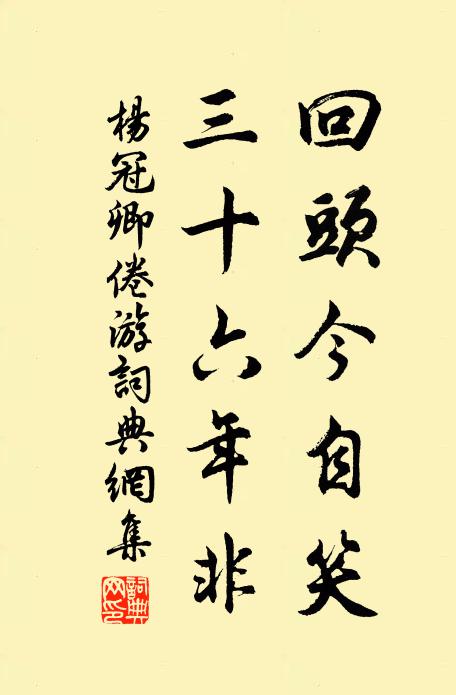 回頭今自笑
三十六年非
楊冠卿倦游詞典網集
詞典網印